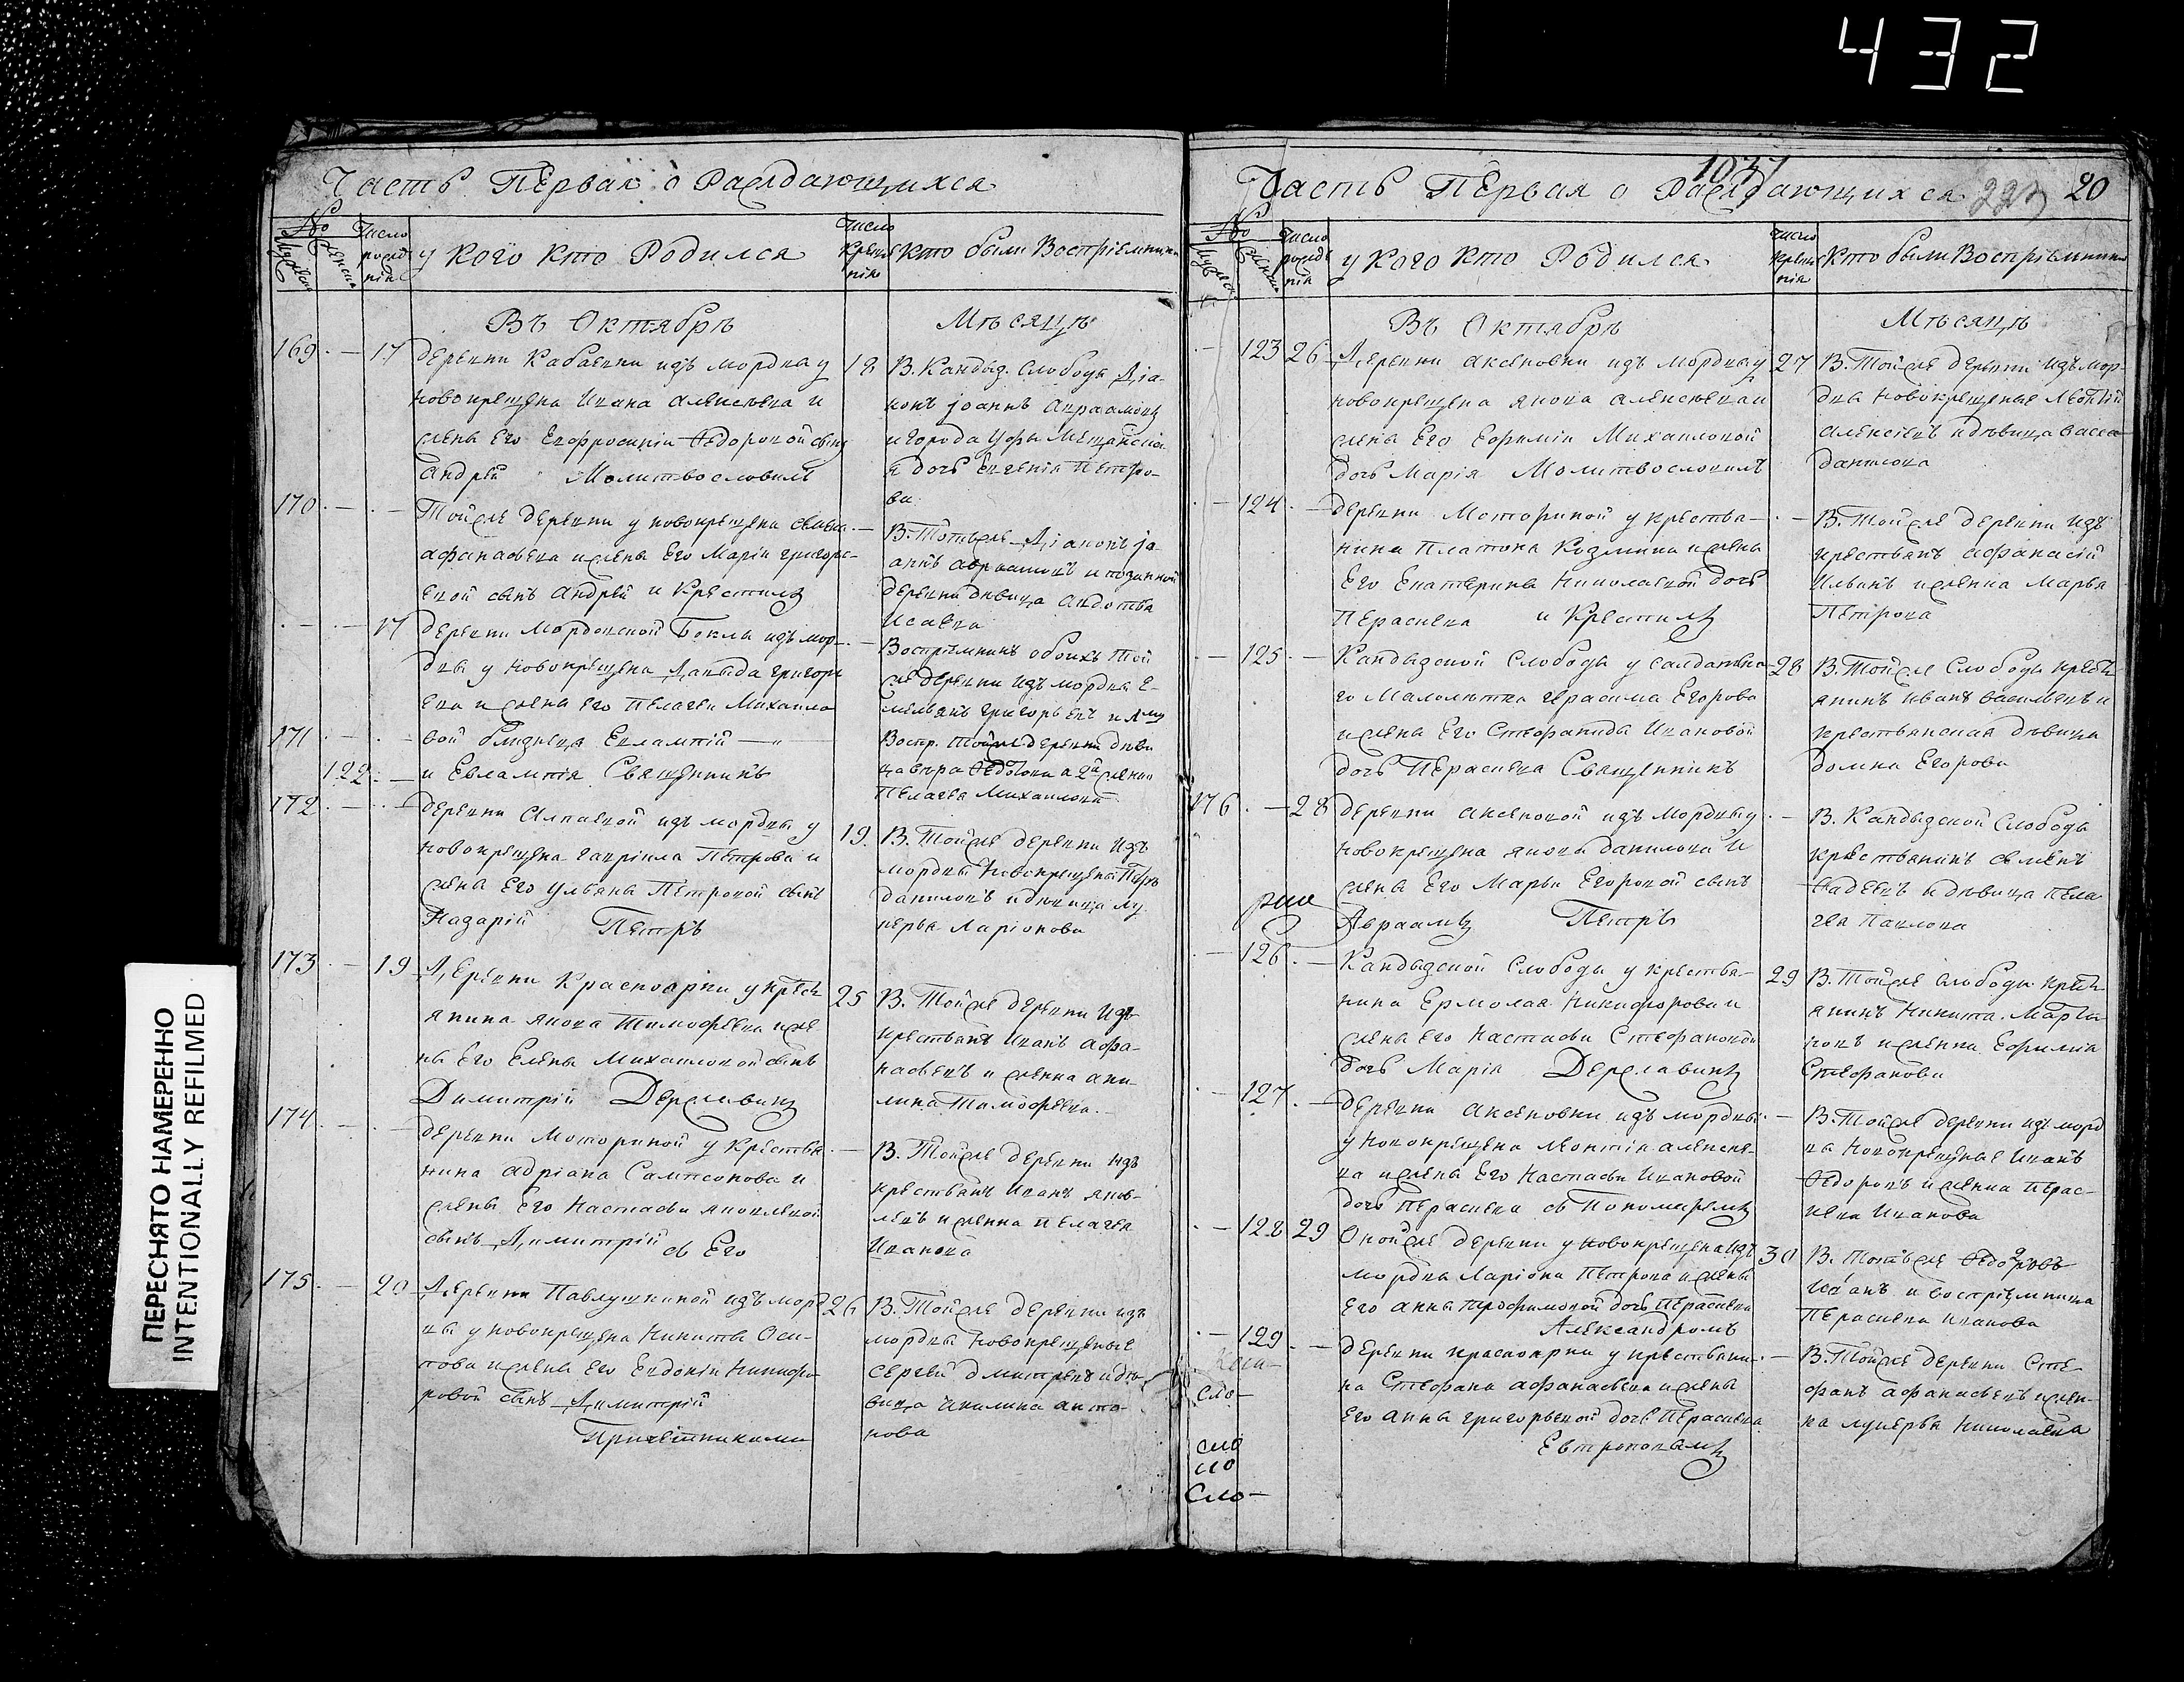 432
ПЕРЕСНЯТО НАМЕРЕННО
INTENTIONALLY REFILMED
Часть Первая о Раждающихся
№
Число рождѣнія
у кого кто Родился
Число крещѣнія
кто были Воспріемники
Въ Октябрѣ
Мѣсяцѣ
169 17 деревни Кабаевки изъ мордвы у
новокрещена Ивана Алексѣева и
жены Его Евфросиніи Ѳедоровой сынъ
Андрей Молитвословилъ
18 В. Кандыз. Слободы Діа-
конъ Іоаннъ Авраамовъ
и города Уфы Мещанска-
я дочь Евгенія Петро-
ва
170 Той же деревни у новокрещена Семена
Афанасьева и жены Его Маріи Григорь-
евой сынъ Андрей и Крестилъ
В. Тотъ же Діаконъ Іо-
аннъ Авраамовъ и
деревни девица Авдотья
Исаева
17 деревни Мордовской Боклы изъ мор-
двы у новокрещена Давыда Григорь
ева и жены Его Пелагеи Михайло
171 вой близнеца Евлампій
122 и Евлампія Священникъ
Воспрѣмникъ обоихъ той
же деревни изъ мордвы Е-
мельянъ Григорьевъ и
Воспр. той же деревни деви
ца Вера Ѳедотова а 2й женка
Пелагея Михайлова
172 деревни Алпаевой изъ мордвы у
новокрещена Гавріила Петрова и
жены Его Ульяны Петровой сынъ
Назарій Петръ
19. В. Той же деревни изъ
мордвы новокрещены Петръ
Даниловъ и девица Лу
керья Ларіонова
173 19 Деревни Красноярки у крест
янина Якова Тимофеева и же
ны Его Елены Михайловой сынъ
Димитрій Державинъ
25 В. Той же деревни изъ
крестьянъ Иванъ Афа-
насьевъ и женка Аки-
лина Тимофеева
174 деревни Моториной у Крестья
нина Адріана Сампсонова и
жены Его Настасьи Яковлевой
сынъ Димитрій съ Его
В. Той же деревни изъ
крестьянъ Иванъ Яков-
левъ и женка Пелагея
Иванова
175 20 Деревни Павлушкиной изъ морд
вы у новокрещена Никиты Оси-
пова и жены Его Евдокіи Никифо
ровой сынъ Димитрій
Причетниками
26 В. Той же деревни изъ
мордвы новокрещеные
Сергей Дмитревъ и де-
вица Акилина Анто-
нова
1037
Часть Первая о Раждающихся
20
№
Число рождѣнія
у кого кто Родился
Число крещенія
кто были Воспріемники
Въ Октябрѣ
Мѣсяцѣ
123 26 Деревни Аксеновки изъ мордвы у
новокрещена Якова Алексѣева и
жены Его Евфиміи Михайловой
дочь Марія Молитвословилъ
27 В. Той же деревни изъ мор-
двы новокрещеные Леонтій
Алексѣевъ и дѣвица Васса
Данилова
124 деревни Моториной у крестья-
нина Платона Козмина и жены
Его Екатерины Николаевой дочь
Перасковья и Крестилъ
В. Той же деревни изъ
крестьянъ Афанасій
Ильинъ и женка Марья
Петрова
125 Кандызской Слободы у салдатска
го Малолетка Герасима Егорова
и жены Его Стефаниды Ивановой
дочь Пераскева Священникъ
28 В. Той же Слободы крест
янинъ Иванъ Васильевъ и
крестьянская дѣвица
Домна Егорова
176 28 деревни Аксеновой изъ мордвы у
новокрещена Якова Данилова и
жены Его Марьи Егоровой сынъ
Авраамъ Петръ
В. Кандызской Слободы
крестьянинъ Семенъ
Ѳадеевъ и дѣвица Пела
гея Павлова
126 Кандызской Слободы у крестья-
нина Ермолая Никифорова и
жены Его Настасьи Стефановой
дочь Марія Державинъ
29 В. Той же слободы крест
янинъ Никита Марты-
новъ и женка Ефимія
Стефанова
127 деревни Аксеновки изъ мордвы
у новокрещена Леонтія Алексее-
ва и жены Его Настасьи Ивановой
дочь Пераскева съ Пономаремъ
В. Той же деревни изъ морд
вы новокрещеные Иванъ
Ѳедоровъ и женка Перас-
кева Иванова
128 29 Оной же деревни у новокрещена изъ
мордвы Ларіона Петрова и жены
Его Анны Трофимовой дочь Пераскева
Александромъ
30 В. Тотъ же Ѳедоровъ
Иванъ и воспріемница
Пераскева Иванова
129 деревни Красноярки у крестьяни-
на Стефана Афанасьева и жены
Его Анны Григорьевой дочь Пераскева
Евтроповымъ
В. Той же деревни Сте-
фанъ Афанасьевъ и жен-
ка Лукерья Николаева
сло-
сло-